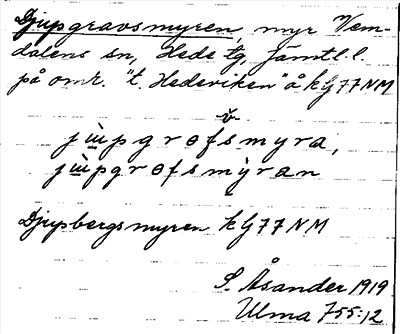 Djupgravsmyren, myr Vem-
dalens sn, Hede tg, Jämtl. l.
på omr. "t. Hedeviken" å kG 77 NM
jɯ̀pgrofs̆myra,
jɯ̀pgrofsmyran
Djupbergsmyren kG 77 NM
S. Åsander 1919
Ulma 755:12